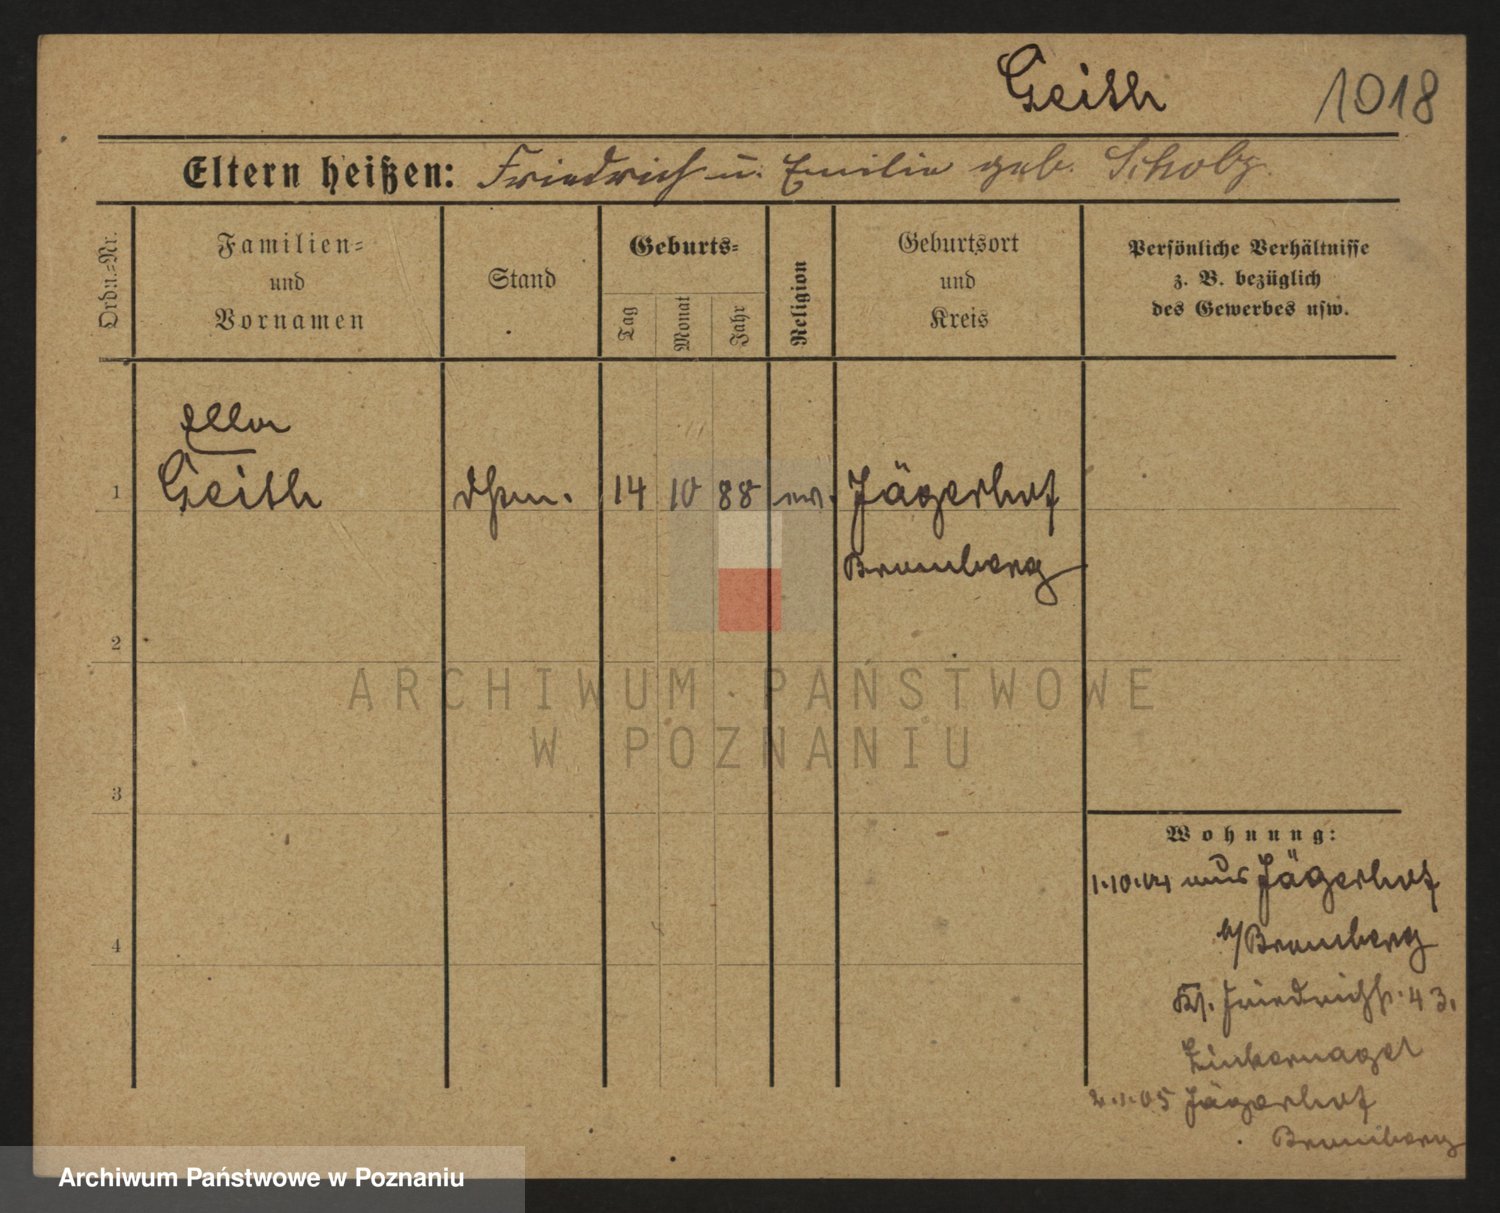 Geith 1018
Eltern heißen: Friedrich u. Emilie geb. Scholz.
Ordn.-Nr.
Familien-
und
Vornamen
Stand
Geburts-
Tag
Monat
Jahr
Religion
Geburtsort
und
Kreis
Persönliche Verhältnisse
z. B. bezüglich
des Gewerbes usw.
Ella
1 Geith 14 10 88 ev. Jägerhof
Bromberg
2
ARCHIWUM PAŃSTWOWE
W POZNANIU
3
Wohnung:
1.10.04 aus Jägerhof
b/Bromberg
4
Friedrichstr. 43.
2.1.05 Jägerhof
Bromberg
Archiwum Państwowe w Poznaniu